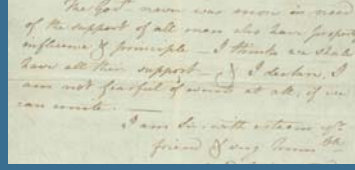 The Govt. never was more in need
of the support of all men who have property
influence & principle – I think we shall
have all their support – & I declare, I
am not fearful of events at all, if we
can unite. —
I am Sir, with esteem yr.
friend & very humb